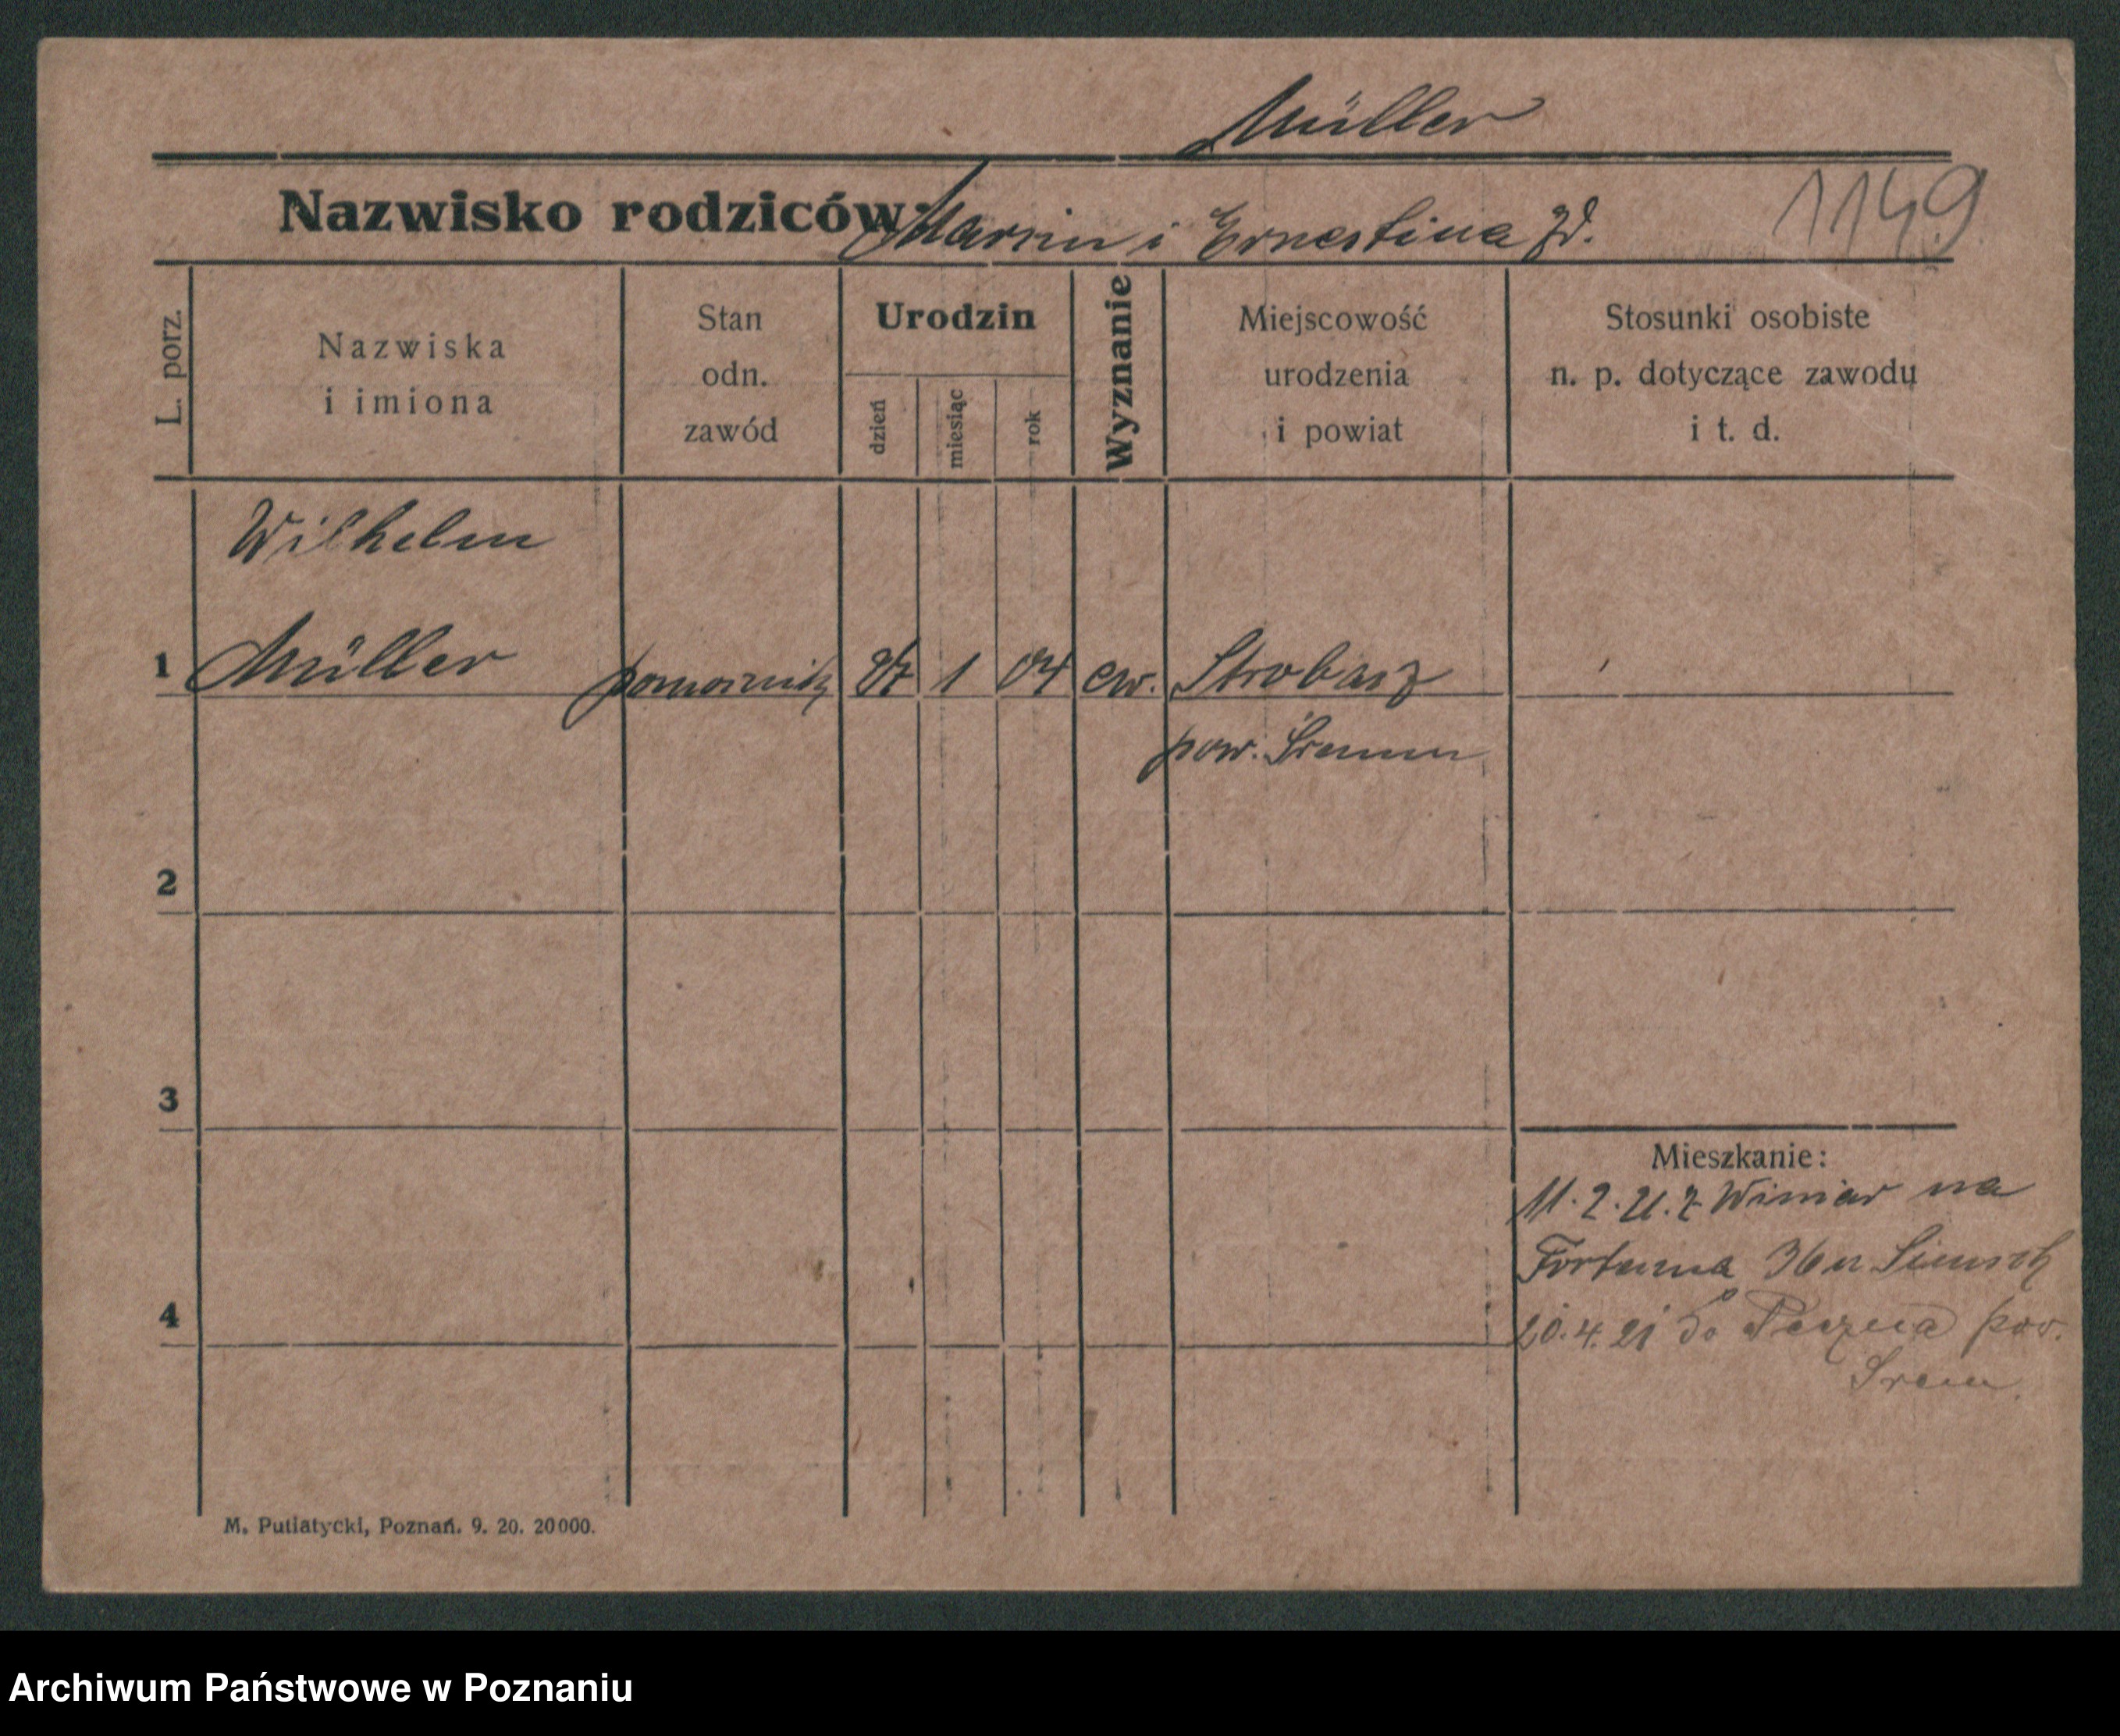 Müller
Nazwisko rodziców: Marcin i Ernestina
1149
L. porz.
Nazwiska
i imiona
Stan
odn.
zawód
Urodzin
dzień
miesiąc
rok
Wyznanie
Miejscowość
urodzenia
i powiat
Stosunki osobiste
n. p. dotyczące zawodu
i t. d.
Wilhelm
1 Müller pomocnik 1 04 ew. Strobasz
pow. Śremm
2
3
4
Mieszkanie:
11.2.21. z Winiar na
20.4.21 do pow.
Srem
M. Putiatycki, Poznań. 9. 20. 20000.
Archiwum Państwowe w Poznaniu